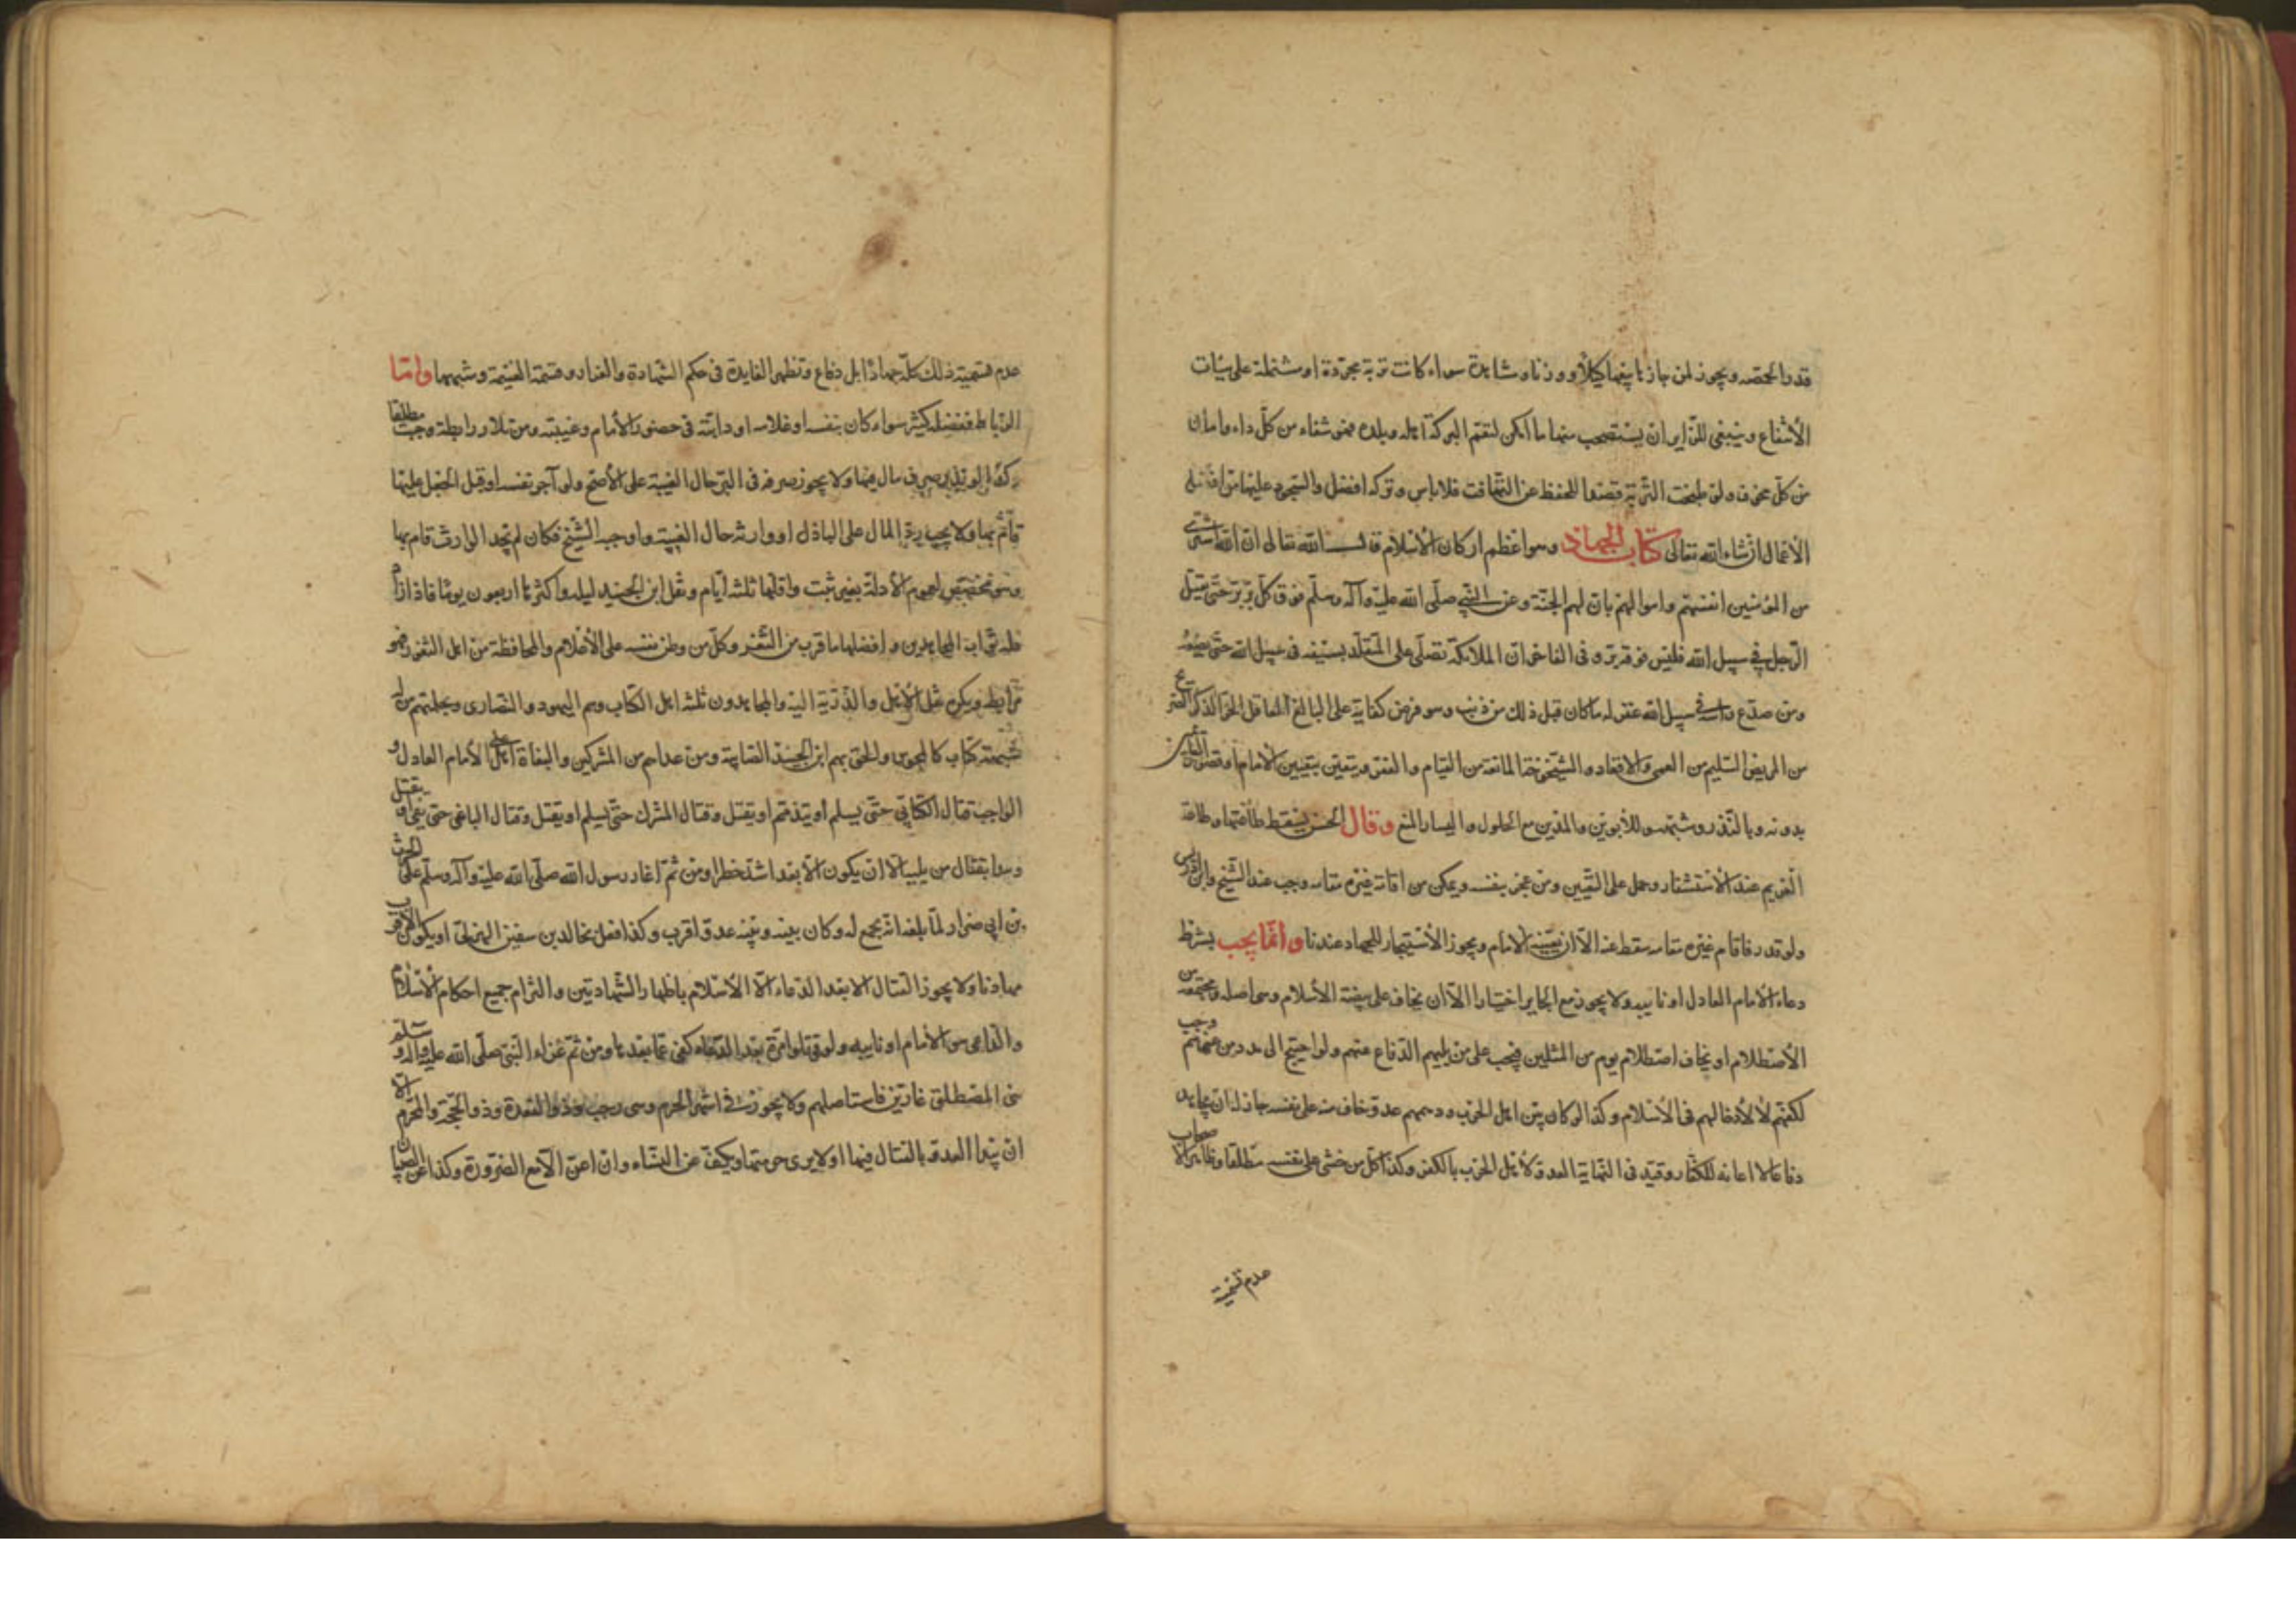 قدر الحصه ويجوز لمن حازها بيعها كيلا ووزنا ومشاهدة سواء كانت تربة مجردة او مشتملة على هيئات
الانتفاع وينبغي للزاير ان يستصحب منها ما امكن لتعم البركة اهله وبلده فهو شفاء من كل داء وامان
من كل مخوف ولو طبخت التربة قصدا للحفظ عن التهافت فلا باس وتركه افضل والسجود عليها من افضل
الاعمال ان شاء الله تعالى كتاب الجهاد وهو اعظم اركان الاسلام قال الله تعالى ان الله اشترى
من المؤمنين انفسهم واموالهم بان لهم الجنة وعن النبي صلى الله عليه وآله وسلم فوق كل بر بر حتى يقتل
الرجل في سبيل الله فليس فوقه بر وفي الفاخر ان الملائكة تصلى على المتقلد بسيفه في سبيل الله حتى يضعه
ومن صدع راسه في سبيل الله غفر له ما كان قبل ذلك من ذنب وهو فرض كفاية على البالغ العاقل الحر الذكر غير
من المريض السليم من العمى والاقعاد والشيخوخة المانعة من القيام والفقر ويتعين بتعيين الامام او قصور الناس
بدونه وبالنذر وشبهه وللابوين والمدين مع الحلول واليسار المنع وقال الحسن يسقط طاعتهما وطاعة
الغريم عند الاستنفار وحمل على التعيين ومن عجز بنفسه ويمكن من اقامة غيره مقامه وجب عند الشيخ وابن ادريس
ولو قدر فاقام غيره مقامه سقط عنه الا ان يعينه الامام ويجوز الاستيجار للجهاد عندنا وانما يجب بشرط
دعاء الامام العادل او نايبه ولا يجوز مع الجاير اختيارا الا ان يخاف على بيضة الاسلام وهي اصله ومجتمعه من
الاصطلام او يخاف اصطلام قوم من المسلمين فيجب على من يليهم الدفاع عنهم ولو احتيج الى مدد من غيرهم وجب
لكفهم لا لادخالهم في الاسلام وكذا لو كان بين اهل الحرب ودهمهم عدو خاف منه على نفسه جاز له ان يجاهد
دفاعا لا اعانة للكفار وقيد في النهاية العدو لاهل الحرب بالكفر وكذا كل من خشى على نفسه مطلقا وظاهر الاصحاب
عدم تسمية
عدم تسمية ذلك كله جهادا بل دفاع وتظهر الفايدة في حكم الشهادة والفرار وقسمة الغنيمة وشبهها واما
الرباط ففضله كثير سواء كان بنفسه او غلامه او دابته في حضور الامام وغيبته ومن نذر رابطة وجبت مطلقا
وكذا لو نذر صرف مال فيها ولا يجوز صرفه في البر حال الغيبة على الاصح ولو آجر نفسه او قبل الجعل عليها
قام بها ولا يجب رد المال على الباذل او وارثه حال الغيبة واوجبه الشيخ فكان لم يجد الوارث قام بها
وهو تخصيص لعموم الادلة بغير ثبت واقلها ثلثه ايام ونقل ابن الجنيد ليله واكثرها اربعون يوما فاذا زاد
فله ثواب المجاهدين و افضلها ما قرب من الثغر وكل من وطن نفسه على الاعلام والمحافظة من اهل الثغور فهو
مرابط ويكره نقل الاهل والذرية اليه والمجاهدون ثلثه اهل الكتاب وهم اليهود والنصارى وبحكمهم من له
شبهة كتاب كالمجوس والحق بهم ابن الجنيد الصابية ومن عداهم من المشركين والبغاة على الامام العادل و
الواجب قتال الكتابي حتى يسلم او يتذمم او يقتل وقتال المشرك حتى يسلم او يقتل وقتال الباغي حتى يفي او يقتل
ويبدا بقتال من يليه الا ان يكون الابعد اشد خطرا ومن ثم اغار رسول الله صلى الله عليه وآله وسلم على الحرث
بن ابي ضرار لما بلغه انه يجمع له وكان بينه وبينه عدو اقرب وكذا فعل بخالد بن سفين الهذلي او يكون الاقرب
مهادنا ولا يجوز القتال الا بعد الدعاء الى الاسلام باظهار الشهادتين والتزام جميع احكام الاسلام
والداعي هو الامام او نايبه ولو قوتلوا مرة بعد الدعاء كفى عما بعدها ومن ثم غزاء النبي صلى الله عليه وآله وسلم
بني المصطلق غارين فاستاصلهم ولا يجوز في اشهر الحرم وهي رجب وذو القعدة وذو الحجة والمحرم الا
ان يبدا العدو بالقتال فيها او لا يرى حرمتها ويكف عن النساء وان اعن الا مع الضرورة وكذا عن الصبيان